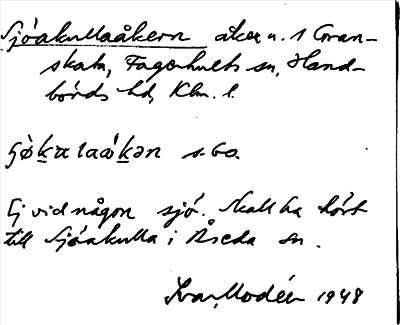 Sjöakullaåkern åker n. 1 Gran-
skata, Fagerhults sn, Hand-
börds hd, Klm. l.
s. bo.
Ej vid någon sjö. Skall ha hört
till Sjöakulla i Åseda sn.
Ivar Modéer 1948